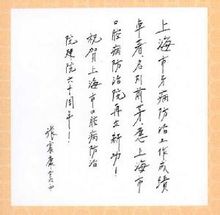 上海市牙病防治工作成绩
年年名列前茅，愿上海市
口腔病防治院再立新功！
祝贺上海市口腔病防治
院建院六十周年！
张震康